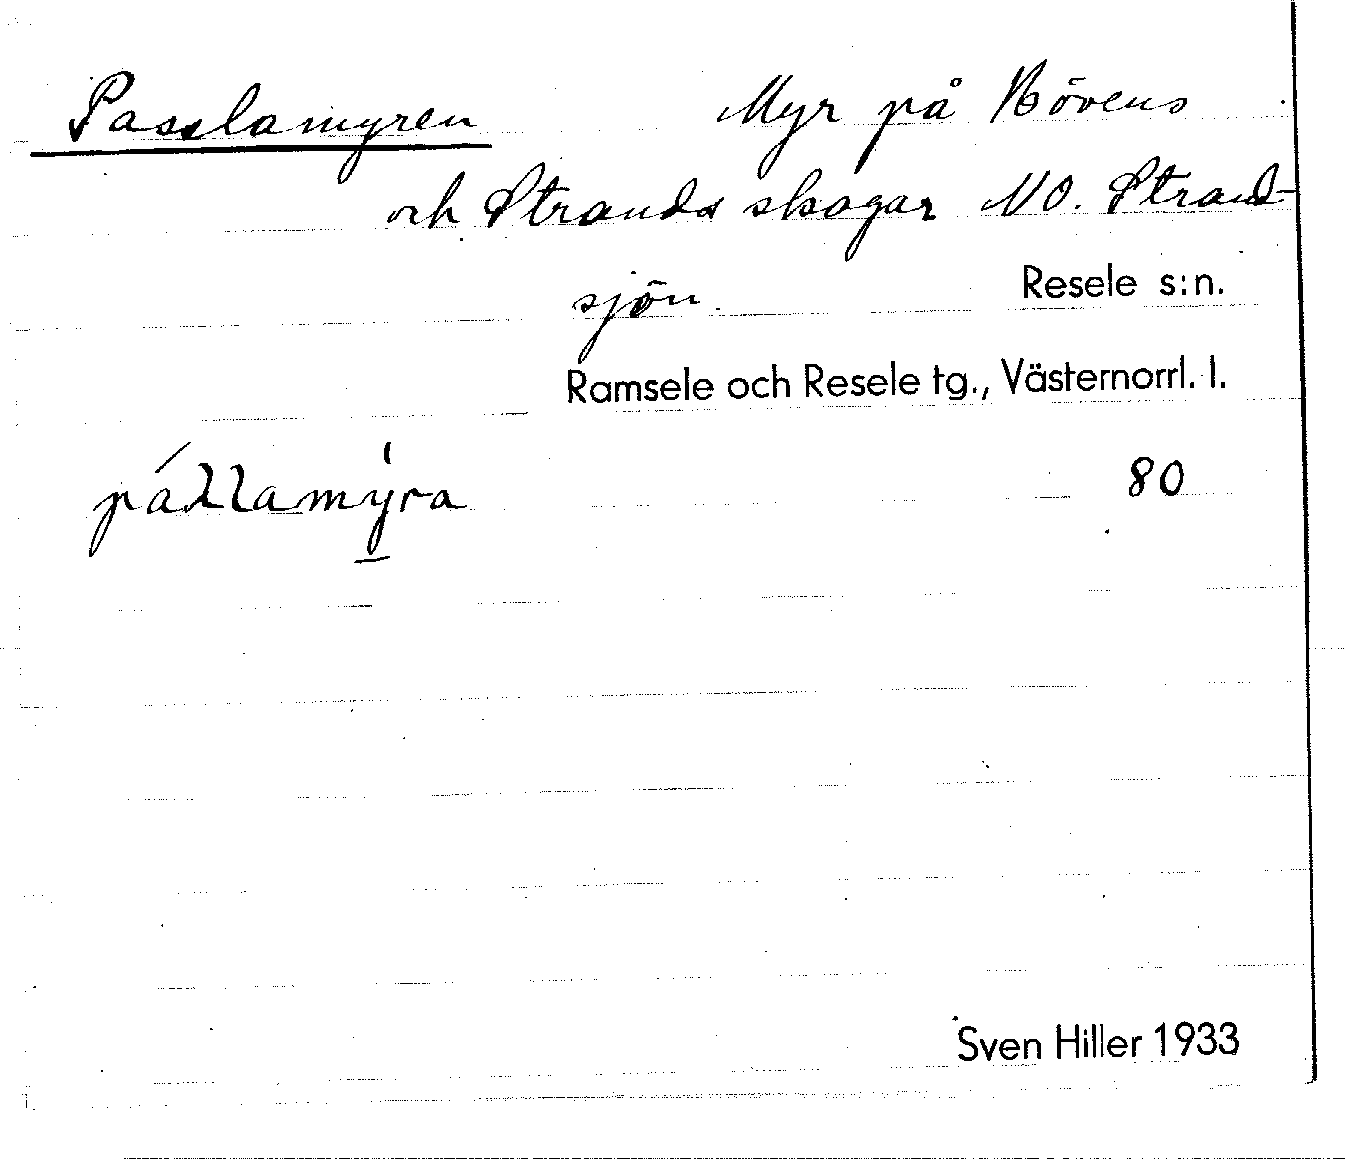 Passlamyren Myr på Hövens
och Strands skogar NO. Strand-
sjön. Resele s:n.
Ramsele och Resele tg., Västernorrl. l.
80
Sven Hiller 1933